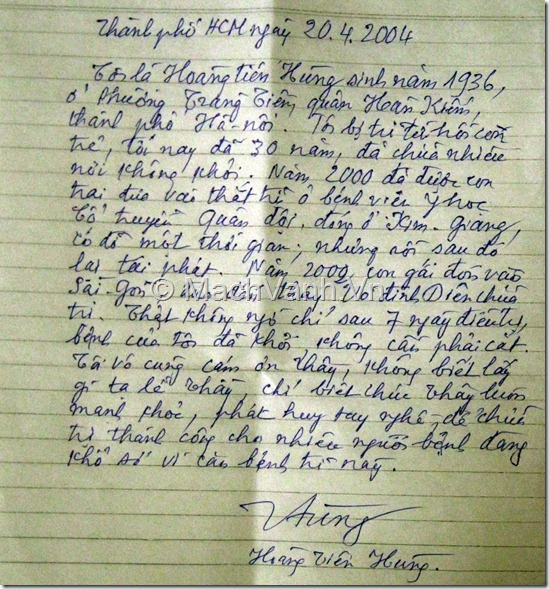 Thành phố HCM ngày 20.4.2004
Tôi là Hoàng Tiến Hùng sinh năm 1936,
ở Phường Tràng Tiền, quận Hoàn Kiếm,
thành phố Hà-nội. Tôi bị trĩ từ hồi còn
trẻ, tới nay đã 30 năm, đã chữa nhiều
nơi không khỏi. Năm 2000 đã được con
trai đưa vào thắt trĩ ở bệnh viện Y học
Cổ truyền Quân đội, đóng ở Kim-Giang,
có đỡ một thời gian; nhưng rồi sau đó
lại tái phát. Năm 2000, con gái đón vào
Sài Gòn thầy Võ đình Diên chữa
trị. Thật không ngờ chỉ sau 7 ngày điều trị,
bệnh của tôi đã khỏi không cần phải cắt.
Tôi vô cùng cám ơn thầy, không biết lấy
gì tạ lễ thầy chỉ biết chúc thầy luôn
mạnh khỏe, phát huy tay nghề, để chữa
trị thành công cho nhiều người bệnh đang
khổ sở vì căn bệnh trĩ này.
Hùng
Hoàng Tiến Hùng.
© MachVanh.Vn